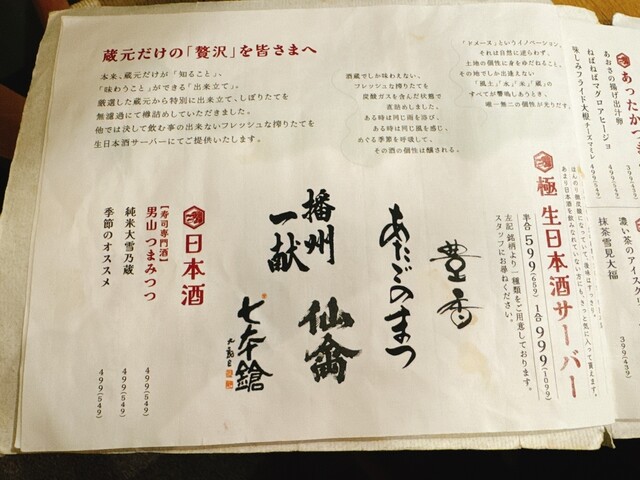 蔵元だけの「贅沢」を皆さまへ
本来、蔵元だけが「知ること」、
「味わうこと」ができる「出来立て」。
厳選した蔵元から特別に出来立て、しぼりたてを
無濾過にて樽詰めしていただきました。
他では決して飲む事の出来ないフレッシュな搾りたてを
生日本酒サーバーにてご提供いたします。
酒蔵でしか味わえない、
フレッシュな搾りたてを
炭酸ガスを含んだ状態で
直詰めしました。
ある時は同じ雨を浴び、
ある時は同じ風を感じ、
めぐる季節を呼吸して、
その酒の個性は醸される。
「ドメーヌ」というイノベーション。
それは自然に逆らわず、
土地の個性に身をゆだねること。
その地でしか出逢えない
「風土」「水」「米」「蔵」の
すべてが響鳴しあうとき、
唯一無二の個性が光りだす。
あったか
あおさの揚げ出汁卵
ねばねばマグロアヒージョ
味しみフライド大根 チーズマミレ
499(549)
439(483)
濃い茶のアイスク
抹茶雪見大福
極 生日本酒サーバー
ほんのり微炭酸になっていて後味はすっきり。
あまり日本酒を飲みなれていない方にも、きっと気に入って貰えます。
半合 599(659) 1合 999(1099)
左記銘柄より一種類をご用意しております。
スタッフにお尋ねください。
豊香
あたごのまつ
播州一献
仙禽
七本鎗
日本酒
【寿司専門酒】
男山 つまみつつ
499(549)
純米大雪乃蔵
499(549)
季節のオススメ
499(549)